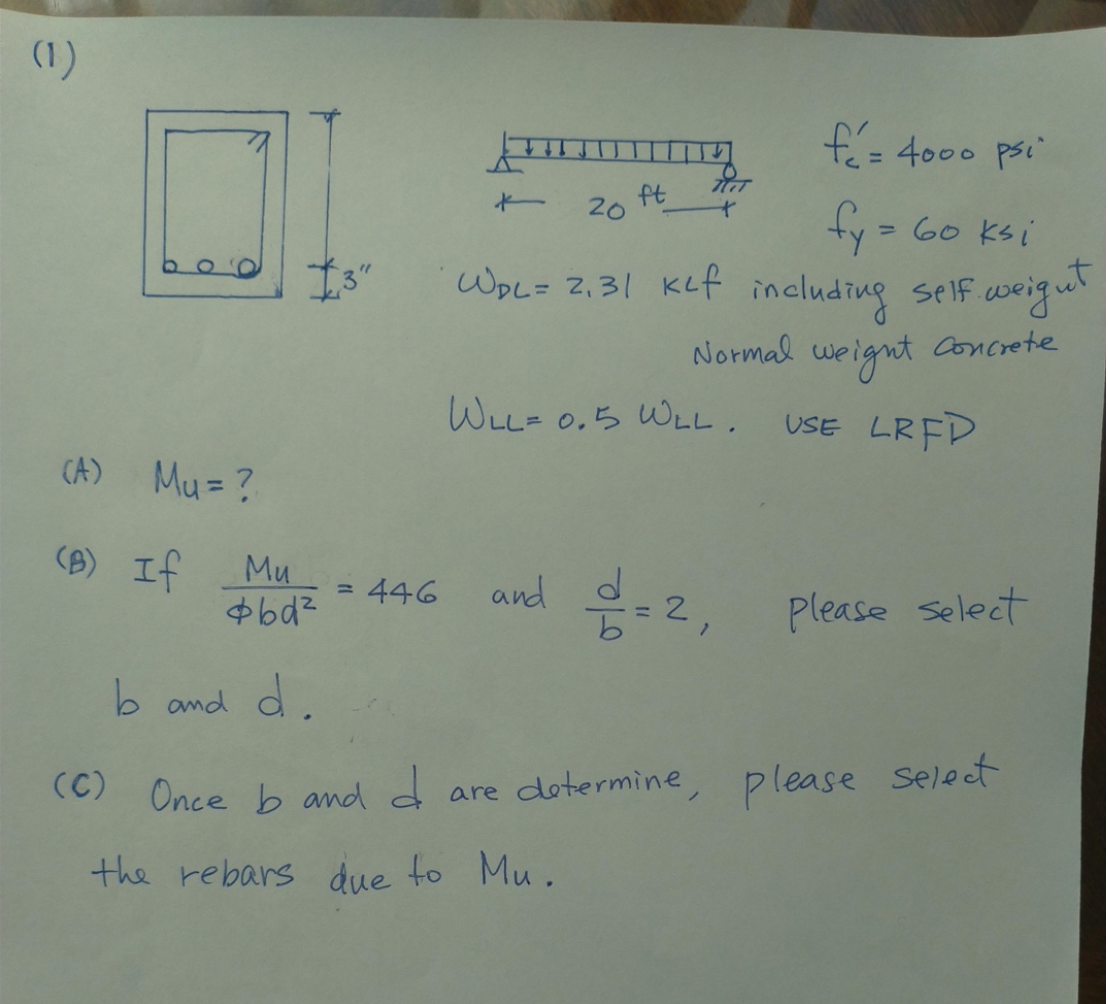 (1)
f'c = 4000 psi
20 ft
fy = 60 ksi
3"
WDL = 2.31 KLf including self weigut
Normal weignt Concrete
WLL = 0.5 WLL. USE LRFD
(A) Mu = ?
(B) If Mu/ϕbd² = 446 and d/b = 2, please select
b and d.
(C) Once b and d are determine, please select
the rebars due to Mu.